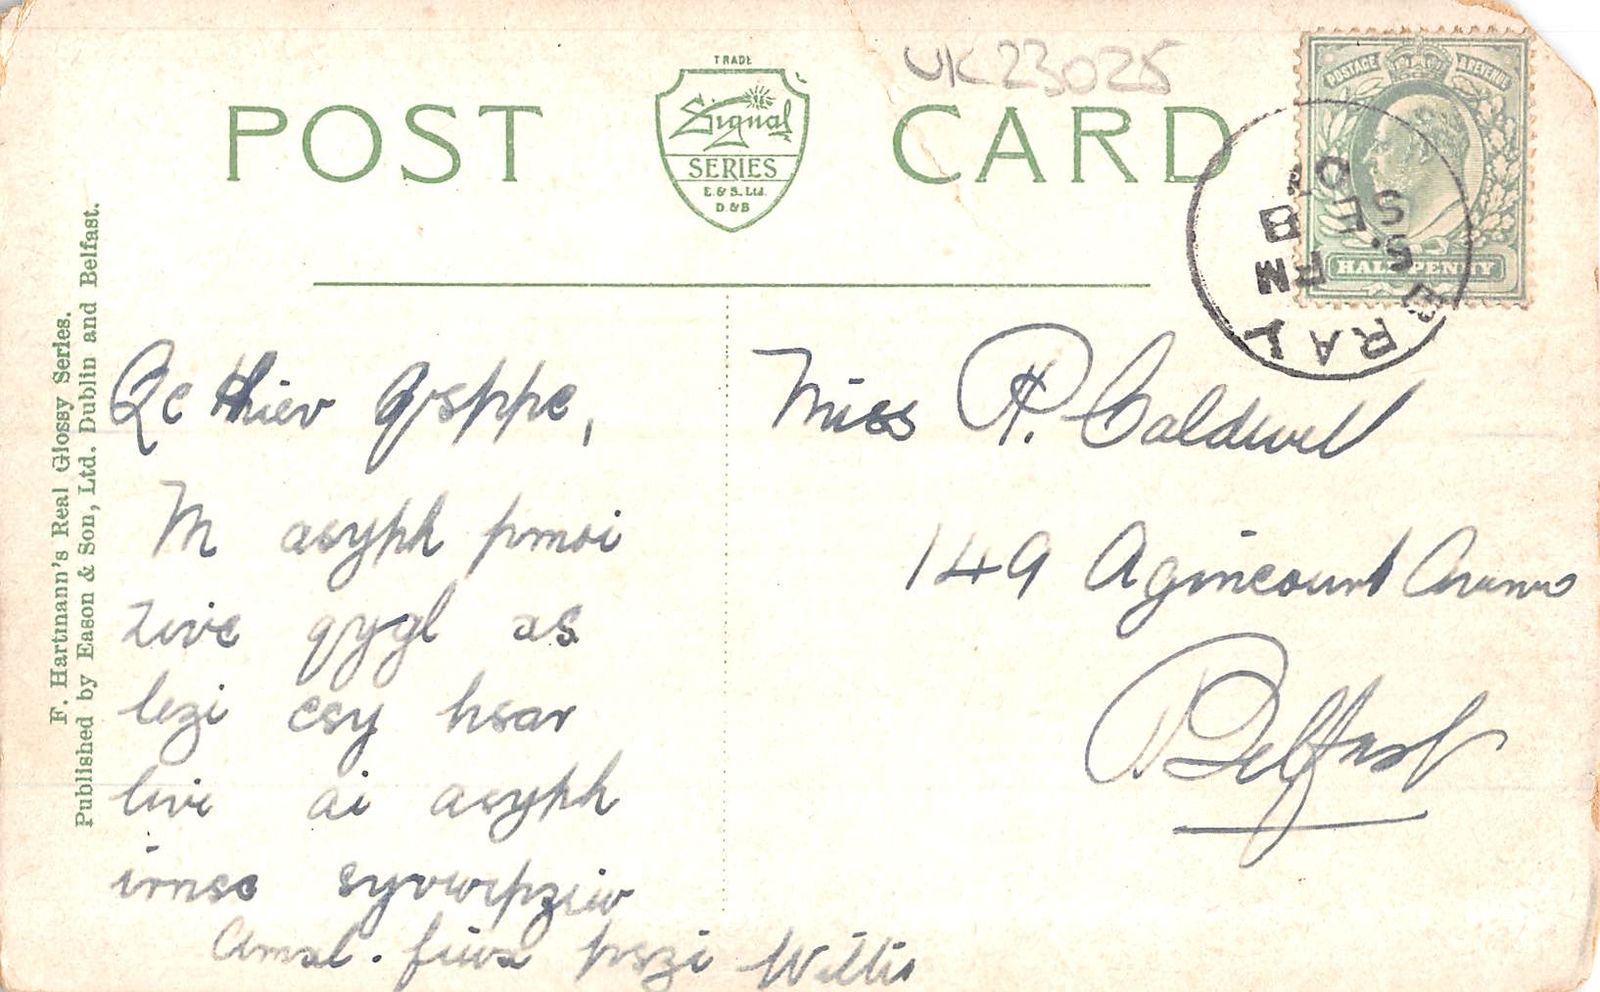 POST CARD
TRADE
Signal
SERIES
E. & S. Ltd.
D & B
UK23025
POSTAGE & REVENUE
HALFPENNY
PM
5 SE
07
F. Hartmann's Real Glossy Series.
Published by Eason & Son, Ltd. Dublin and Belfast.
Qc hiev Gsppc,
M asyph pmoi
zivc qygl xs
lezi csy hsar
livi ai asyph
irnsc syvwipziw
Amxl. fiwx pszi Willie
Miss R. Caldwell
149 Agincourt Avenue
Belfast